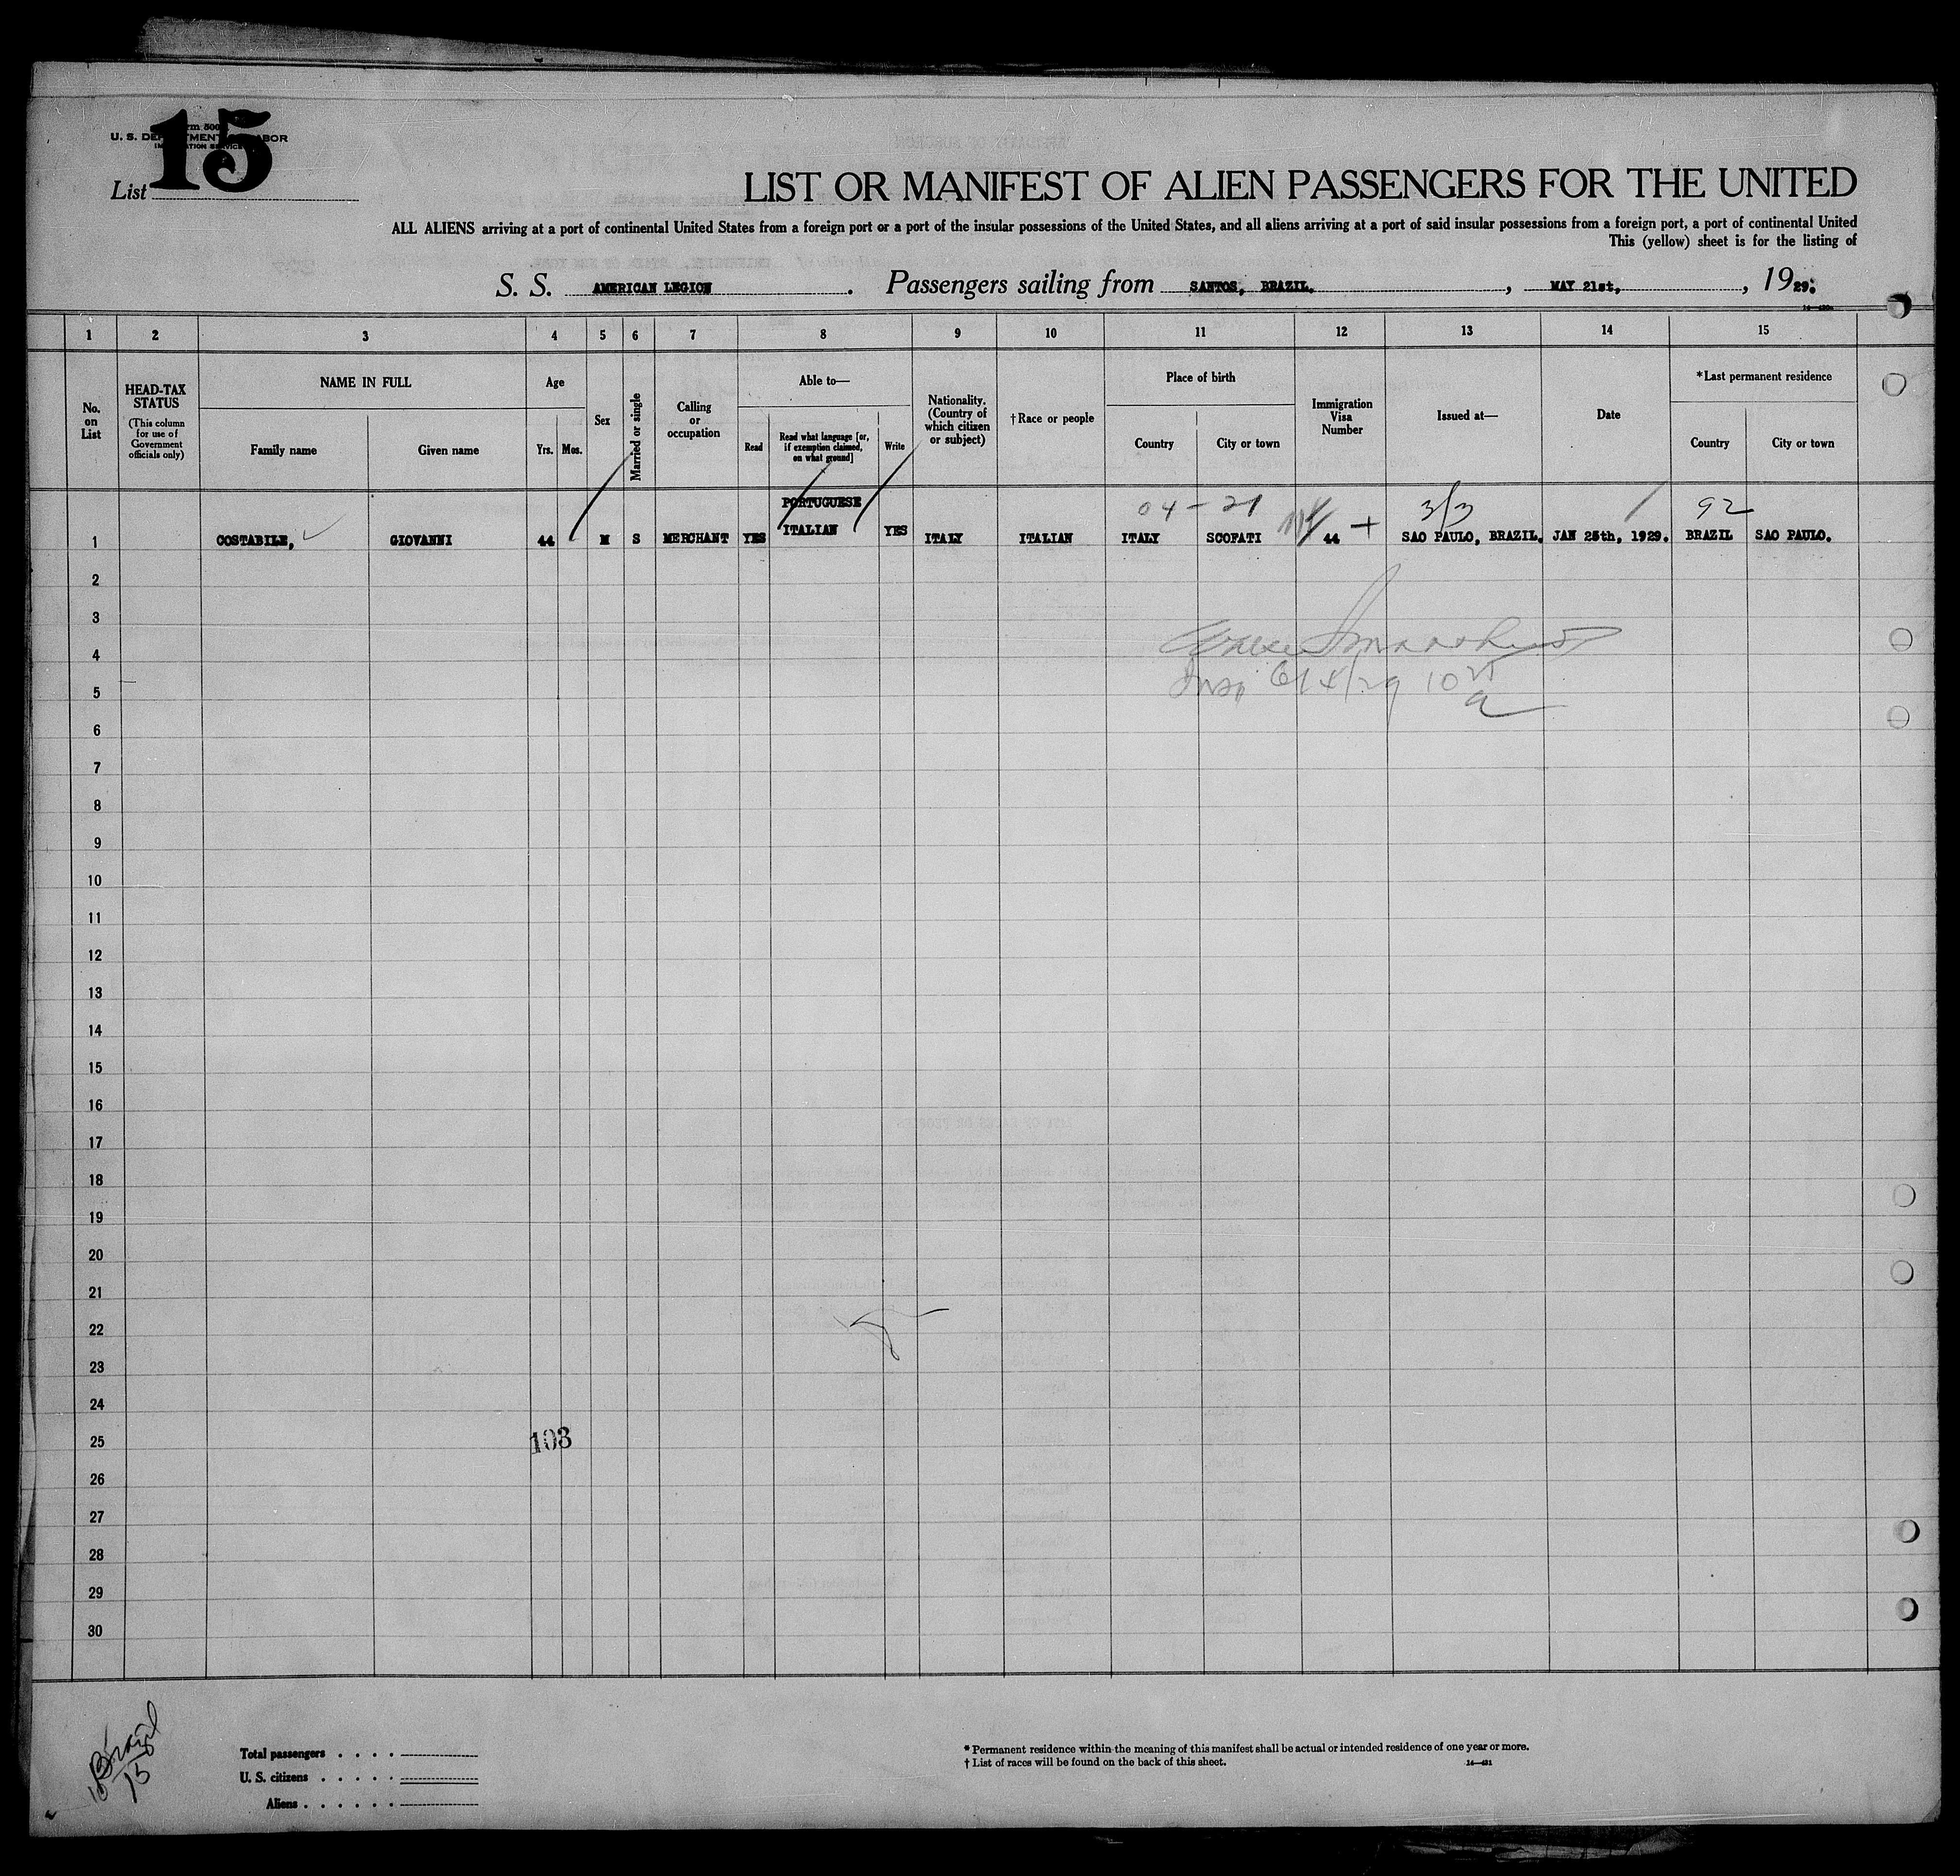 15
U. S. DEPARTMENT OF LABOR
IMMIGRATION SERVICE
List
LIST OR MANIFEST OF ALIEN PASSENGERS FOR THE UNITED
ALL ALIENS arriving at a port of continental United States from a foreign port or a port of the insular possessions of the United States, and all aliens arriving at a port of said insular possessions from a foreign port, a port of continental United
This (yellow) sheet is for the listing of
S. S. AMERICAN LEGION. Passengers sailing from SANTOS, BRAZIL., MAY 21st,, 1929.
1 2 3 4 5 6 7 8 9 10 11 12 13 14 15
No. on List
HEAD-TAX STATUS
(This column for use of Government officials only)
NAME IN FULL
Family name Given name
Age
Yrs. Mos.
Sex
Married or single
Calling or occupation
Able to—
Read
Read what language [or, if exemption claimed, on what ground]
Write
Nationality. (Country of which citizen or subject)
†Race or people
Place of birth
Country City or town
Immigration Visa Number
Issued at—
Date
*Last permanent residence
Country City or town
PORTUGUESE 04-21 3/3 92
1 COSTABILE, GIOVANNI 44 M S MERCHANT YES ITALIAN YES ITALY ITALIAN ITALY SCOFATI 44 SAO PAULO, BRAZIL. JAN 25th, 1929. BRAZIL SAO PAULO.
2
3
4
5
6
7
8
9
10
11
12
13
14
15
16
17
18
19
20
21
22
23
24
25 103
26
27
28
29
30
Brazil
15
Total passengers
U. S. citizens
Aliens
* Permanent residence within the meaning of this manifest shall be actual or intended residence of one year or more.
† List of races will be found on the back of this sheet.